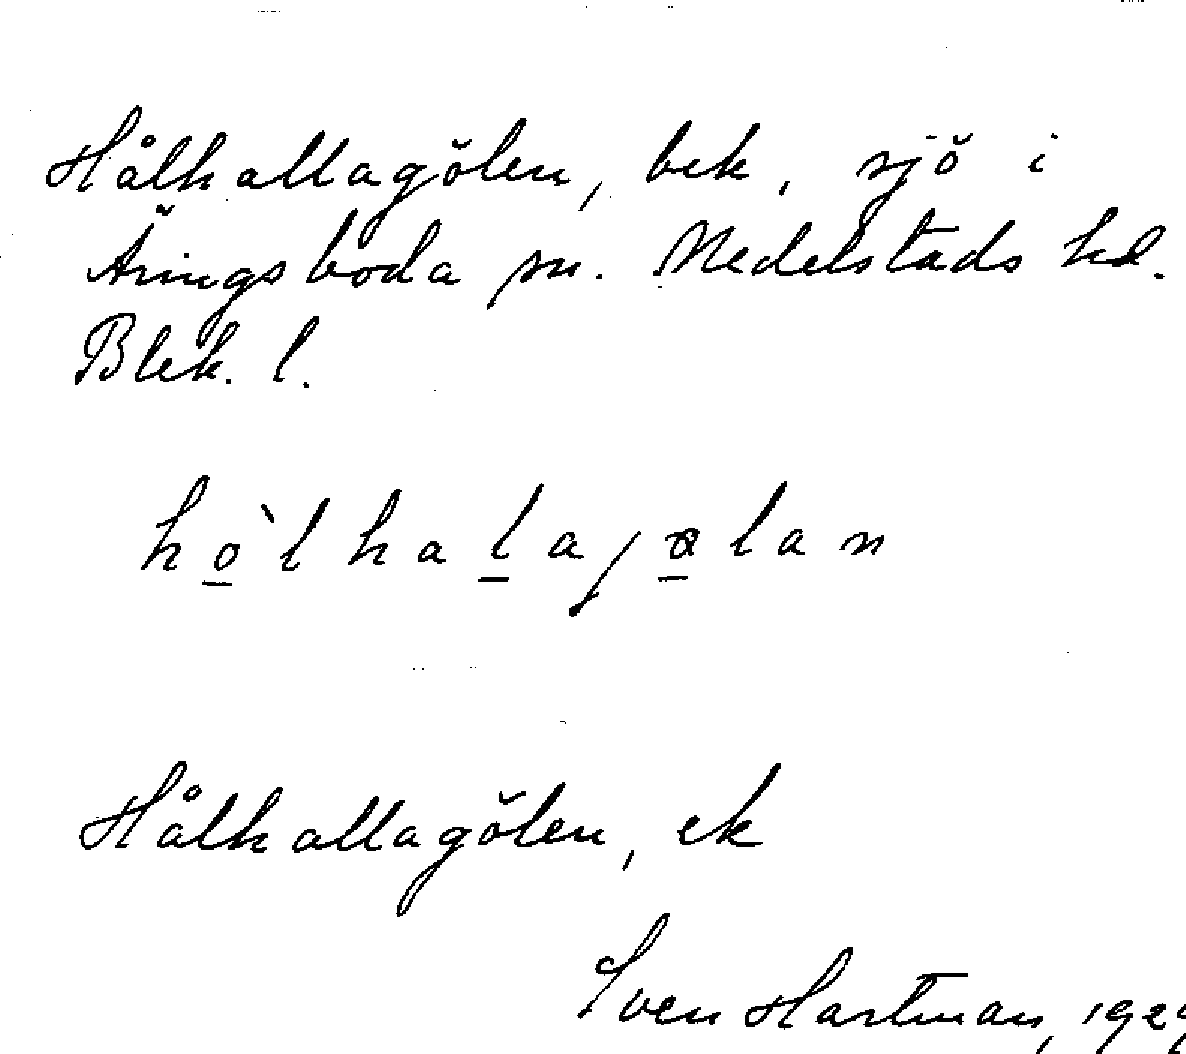 Hålhallagölen, bek, sjö i
Äringsboda sn. Medelstads hd.
Blek. l.
hо̲̀lhal̲aʃø̲lan
Hålhallagölen, ek
Sven Hartman,